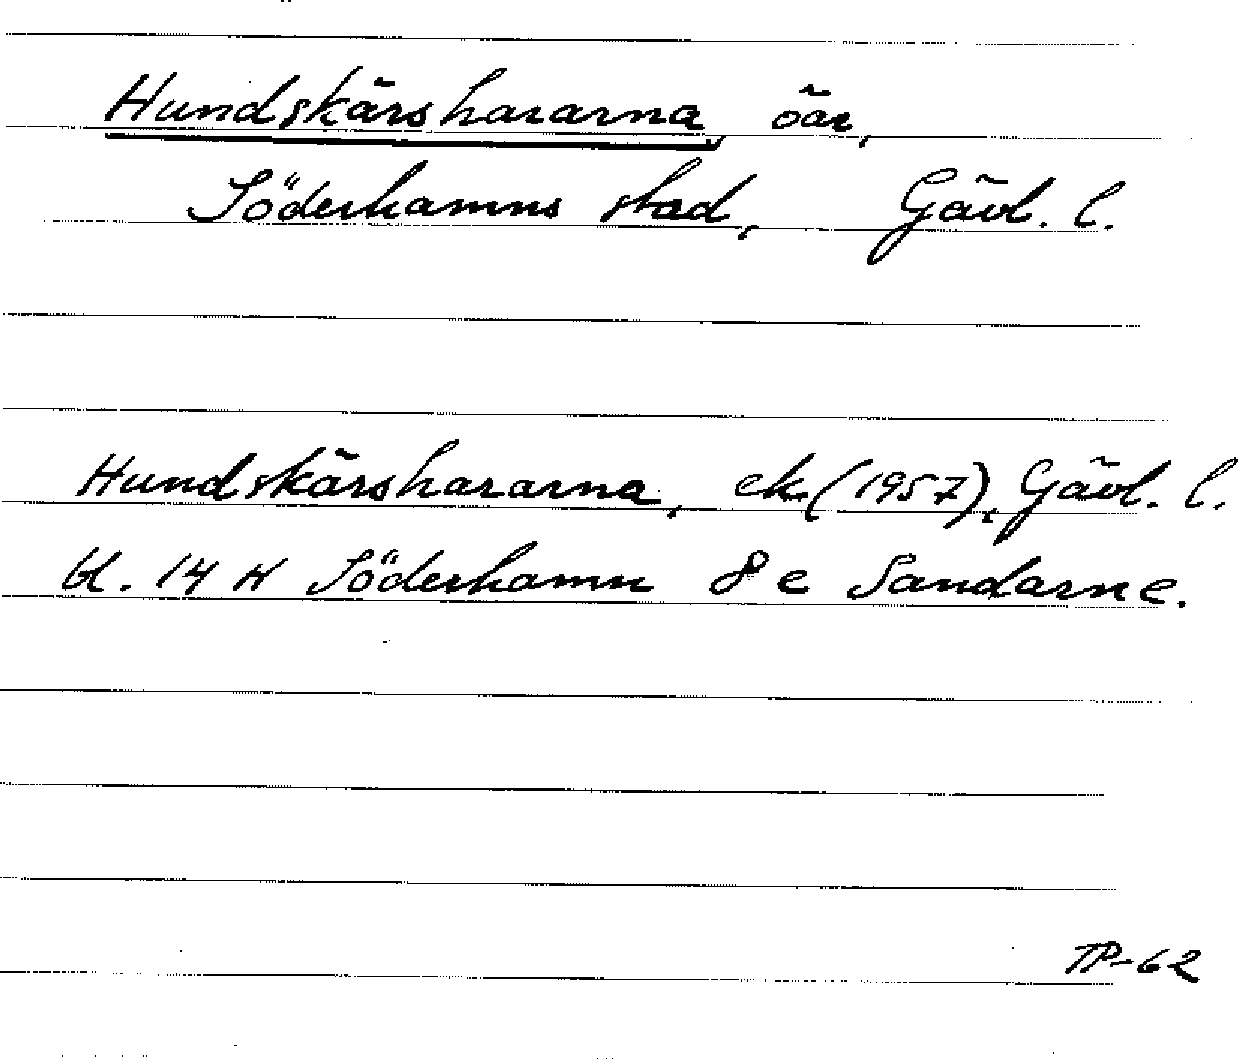 Hundskärshararna, öar,
Söderhamns stad, Gävl. l.
Hundskärshararna, ek. (1957), Gävl. l.
bl. 14 H Söderhamn 8 e Sandarne.
TP-62